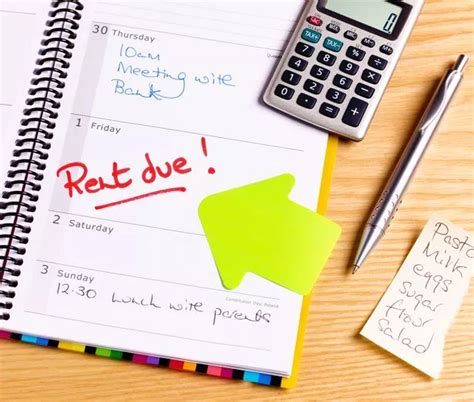 30 Thursday
10am
Meeting with
Bank
1 Friday
Rent due!
2 Saturday
3 Sunday
12.30 Lunch with parents
TAX-
TAX+
0
Pasta
Milk
eggs
Sugar
flour
Salad